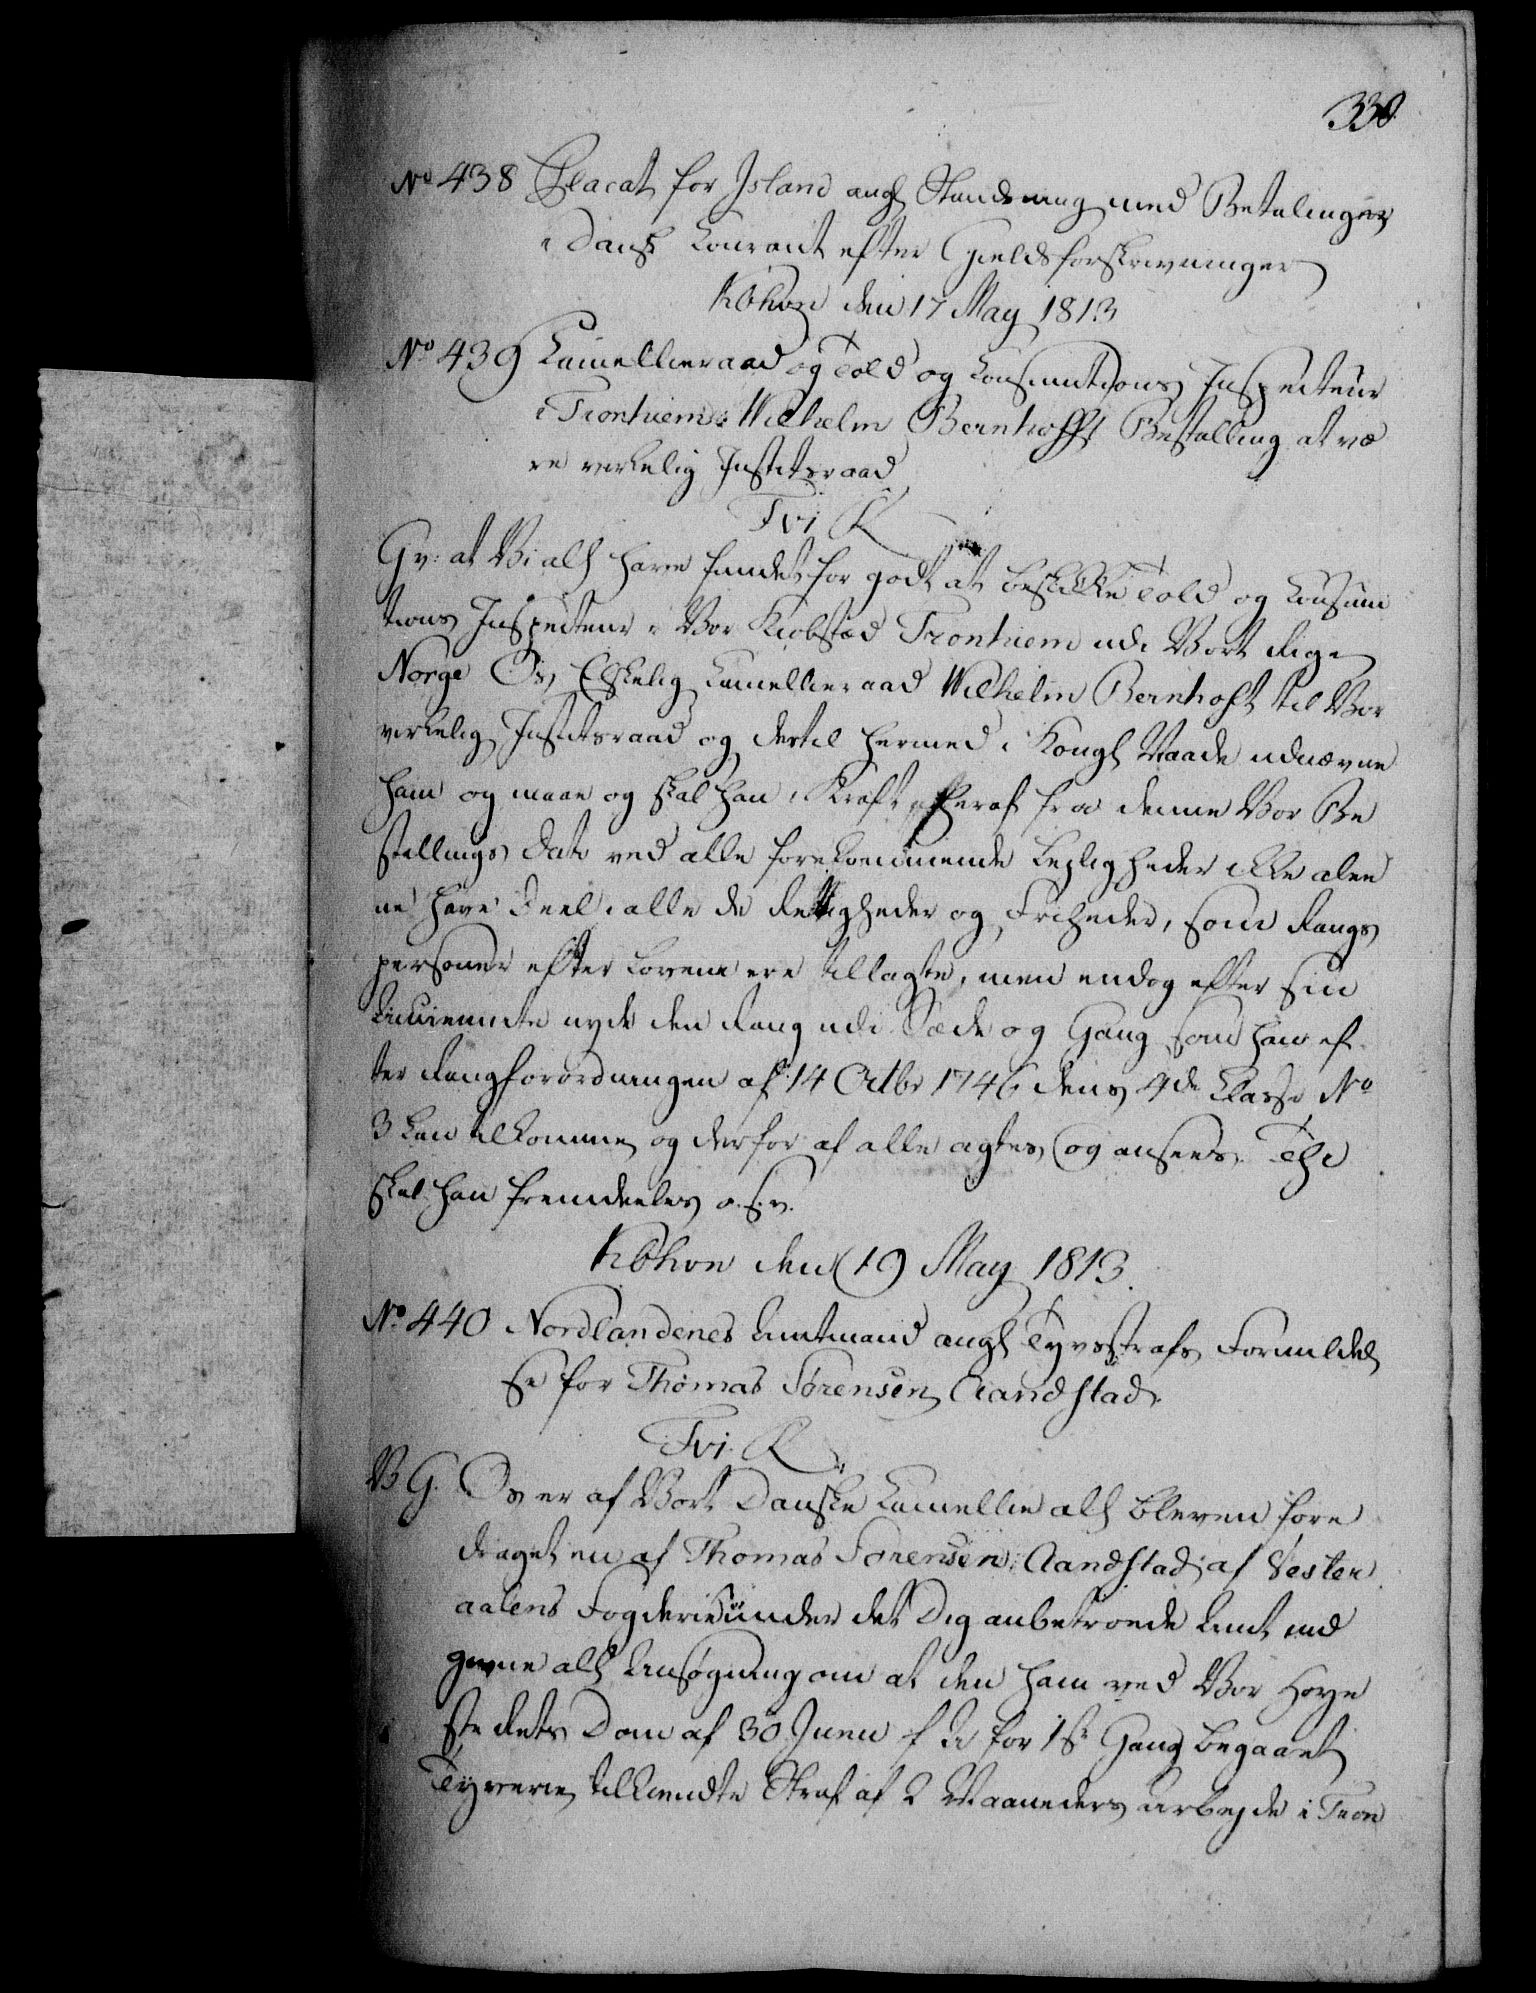 330.
No 438 Placat for Island angl Standsning med Betalinger
i Dansk Courant efter Gieldsforskrivninger
Kbhvn den 17 May 1813
No 439 Cancellieraad og Told og Consumtions Inspecteur
i Tronhiem Wilhelm Bernhofft Bestalling at væ
re virkelig Justitsraad
Fvi R
Gv: at Vi alh have fundet for godt at beskikke Told og Consum
tions Inspecteur i Vor Kiøbstæd Tronhiem udi Vort Rige
Norge Os Elskelig Cancellieraad Wilhelm Bernhoft til Vor
virkelig Justitsraad og dertil hermed i Kongl Naade udnævne
ham og maae og skal han i Kraft heraf fra denne Vor Be
stillings Dato ved alle forekommende Leyligheder ikke alee
ne have Deel i alle de Rettigheder og Friheder, som Rangs
personer efter Lovene ere tillagte, men endog efter sin
Anciennitet nyde den Rang udi Sæde og Gang som han ef
ter Rangforordningen af 14 Octbr 1746 dens 4de Classe No
3 kan tilkomme og derfor af alle agtes og ansees. Thi
skal han fremdeeles o. s. v.
Kbhvn den 19 May 1813.
No 440 Nordlandenes Amtmand angl Tyvsstrafs Formildel
se for Thomas Sørensen Aandstad.
Fvi. R
V G. Os er af Vort Danske Cancellie alh bleven fore
draget en af Thomas Sørensen Aandstad af Vester
aalens Fogderie under det Dig anbetroede Amt ind
given alh Ansøgning om at den ham ved Vor Høye
ste Rets Dom af 30 Junii f A for 1ste Gang begaaet
Tyverie tilkiendte Straf af 2 Maaneders Arbejde i Tron